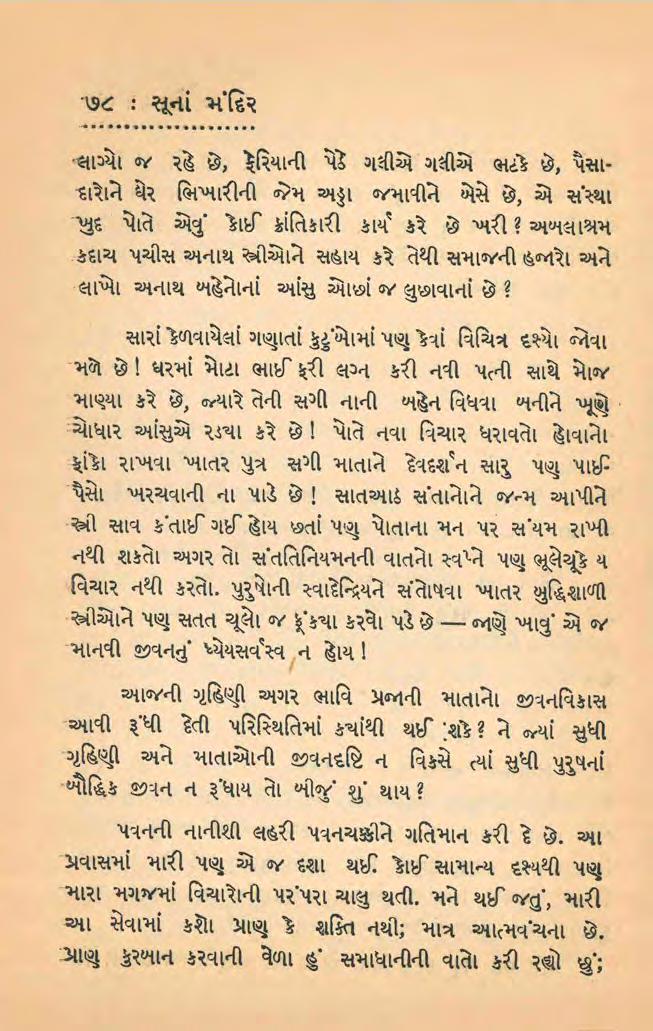 ૭૮ : સૂનાં મંદિર
લાગ્યો જ રહે છે, ફેરિયાની પેઠે ગલીએ ગલીએ ભટકે છે, પૈસા-
દારોને ઘેર ભિખારીની જેમ અડ્ડા જમાવીને બેસે છે, એ સંસ્થા
ખુદ પોતે એવું કોઈ ક્રાંતિકારી કાર્ય કરે છે ખરી? અબલાશ્રમ
કદાચ પચીસ અનાથ સ્ત્રીઓને સહાય કરે તેથી સમાજની હજારો અને
લાખો અનાથ બહેનોનાં આંસુ ઓછાં જ લુછાવાનાં છે?
સારાં કેળવાયેલાં ગણાતાં કુટુંબોમાં પણ કેવાં વિચિત્ર દૃશ્યો જોવા
મળે છે! ઘરમાં મોટા ભાઈ ફરી લગ્ન કરી નવી પત્ની સાથે મોજ
માણ્યા કરે છે, જ્યારે તેની સગી નાની બહેન વિધવા બનીને ખૂણે
ચોધાર આંસુએ રડ્યા કરે છે! પોતે નવા વિચાર ધરાવતો હોવાનો
ફાંકો રાખવા ખાતર પુત્ર સગી માતાને દેવદર્શન સારુ પણ પાઈ-
પૈસો ખરચવાની ના પાડે છે! સાતઆઠ સંતાનોને જન્મ આપીને
સ્ત્રી સાવ કંતાઈ ગઈ હોય છતાં પણ પોતાના મન પર સંયમ રાખી
નથી શકતો અગર તો સંતતિનિયમનની વાતનો સ્વપ્ને પણ ભૂલેચૂકે ય
વિચાર નથી કરતો. પુરુષોની સ્વાદેન્દ્રિયને સંતોષવા ખાતર બુદ્ધિશાળી
સ્ત્રીઓને પણ સતત ચૂલો જ ફૂંક્યા કરવો પડે છે — જાણે ખાવું એ જ
માનવી જીવનનું ધ્યેયસર્વસ્વ ન હોય!
આજની ગૃહિણી અગર ભાવિ પ્રજાની માતાનો જીવનવિકાસ
આવી રૂંધી દેતી પરિસ્થિતિમાં ક્યાંથી થઈ શકે? ને જ્યાં સુધી
ગૃહિણી અને માતાઓની જીવનદૃષ્ટિ ન વિકસે ત્યાં સુધી પુરુષનાં
બૌદ્ધિક જીવન ન રૂંધાય તો બીજું શું થાય?
પવનની નાનીશી લહરી પવનચક્કીને ગતિમાન કરી દે છે. આ
પ્રવાસમાં મારી પણ એ જ દશા થઈ. કોઈ સામાન્ય દૃશ્યથી પણ
મારા મગજમાં વિચારોની પરંપરા ચાલુ થતી. મને થઈ જતું, મારી
આ સેવામાં કશો પ્રાણ કે શક્તિ નથી; માત્ર આત્મવંચના છે.
પ્રાણ કુરબાન કરવાની વેળા હું સમાધાનીની વાતો કરી રહ્યો છું;